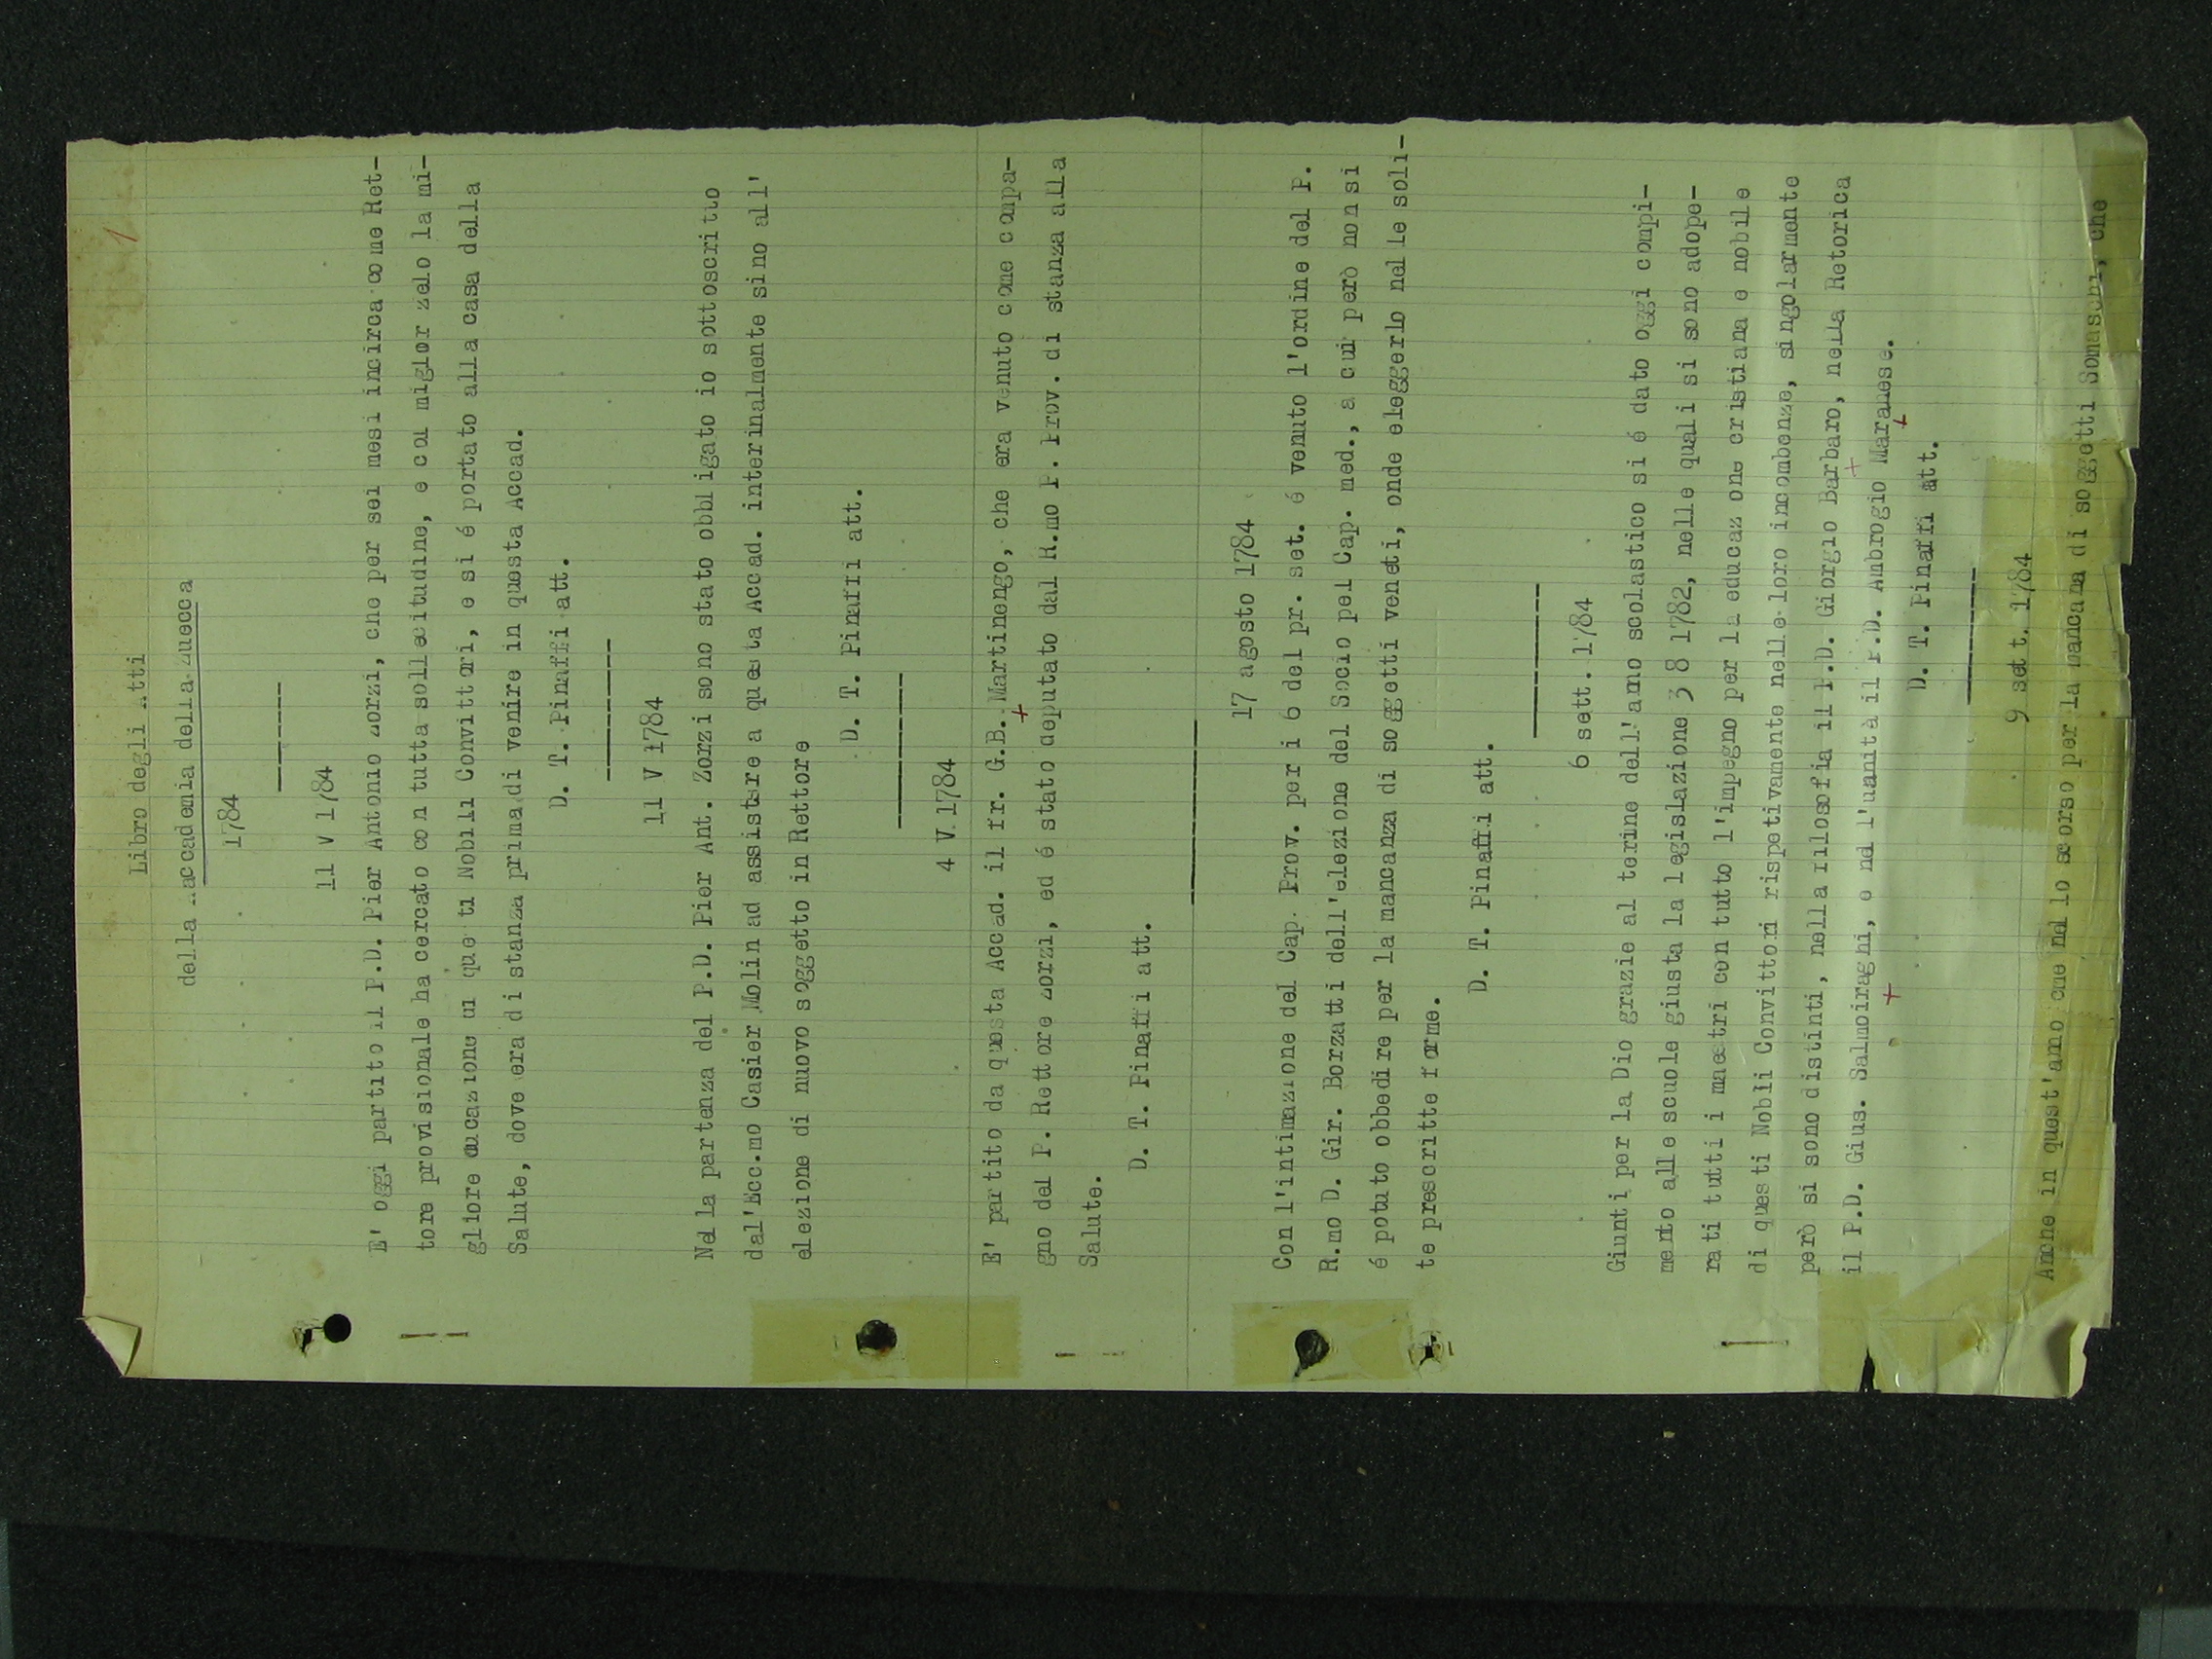 1
Libro degli Atti
della Accademia della Zuecca
1784
11 V 1784
E' oggi partito il P.D. Pier Antonio Zorzi, che per sei mesi incirca come Ret-
tore provisionale ha cercato con tutta sollecitudine, e col miglor zelo la mi-
gliore educazione di questi Nobili Convittori, e si é portato alla casa della
Salute, dove era di stanza prima di venire in questa Accad.
D. T. Pinaffi att.
11 V 1784
Nella partenza del P.D. Pier Ant. Zorzi sono stato obbligato io sottoscritto
dal'Ecc.mo Casier Molin ad assistere a questa Accad. interinalmente sino all'
elezione di nuovo soggetto in Rettore
D. T. Pinarri att.
4 V 1784
E' partito da questa Accad. il fr. G.B. Martinengo, che era venuto come compa-
gno del P. Rettore Zorzi, ed é stato deputato dal R.mo P. Prov. di stanza alla
Salute.
D. T. Pinaffi att.
17 agosto 1784
Con l'intimazione del Cap. Prov. per i 6 del pr. set. é venuto l'ordine del P.
R.mo D. Gir. Borzatti dell'elezione del Socio pel Cap. med., a cui però non si
é potuto obbedire per la mancanza di soggetti veneti, onde eleggerlo nel le soli-
te prescritte forme.
D. T. Pinaffi att.
6 sett. 1784
Giunti per la Dio grazie al terine dell'anno scolastico si é dato oggi compi-
mento alle scuole giusta la legislazione 3 8 1782, nelle quali si sono adope-
rati tutti i maestri con tutto l'impegno per la educazone cristiana e nobile
di questi Nobli Convittori rispetivamente nelle loro incombenze, singolarmente
però si sono distinti, nella filosofia il P.D. Giorgio Barbaro, nella Retorica
il P.D. Gius. Salmoiraghi, e nel l'uanità il P.D. Ambrogio Marganese.
D. T. Pinaffi att.
9 set t. 1784
Anche in quest'anno che nel lo scorso per la mancana di soggetti Somaschi, che